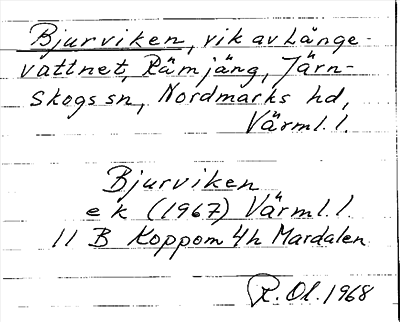 Bjurviken, vik av Länge-
vattnet, Rämjäng, Järn-
skogs sn, Nordmarks hd,
Värml. l.
Bjurviken
e k (1967) Värml. l.
11 B Koppom 4h Mardalen
R. Ol. 1968